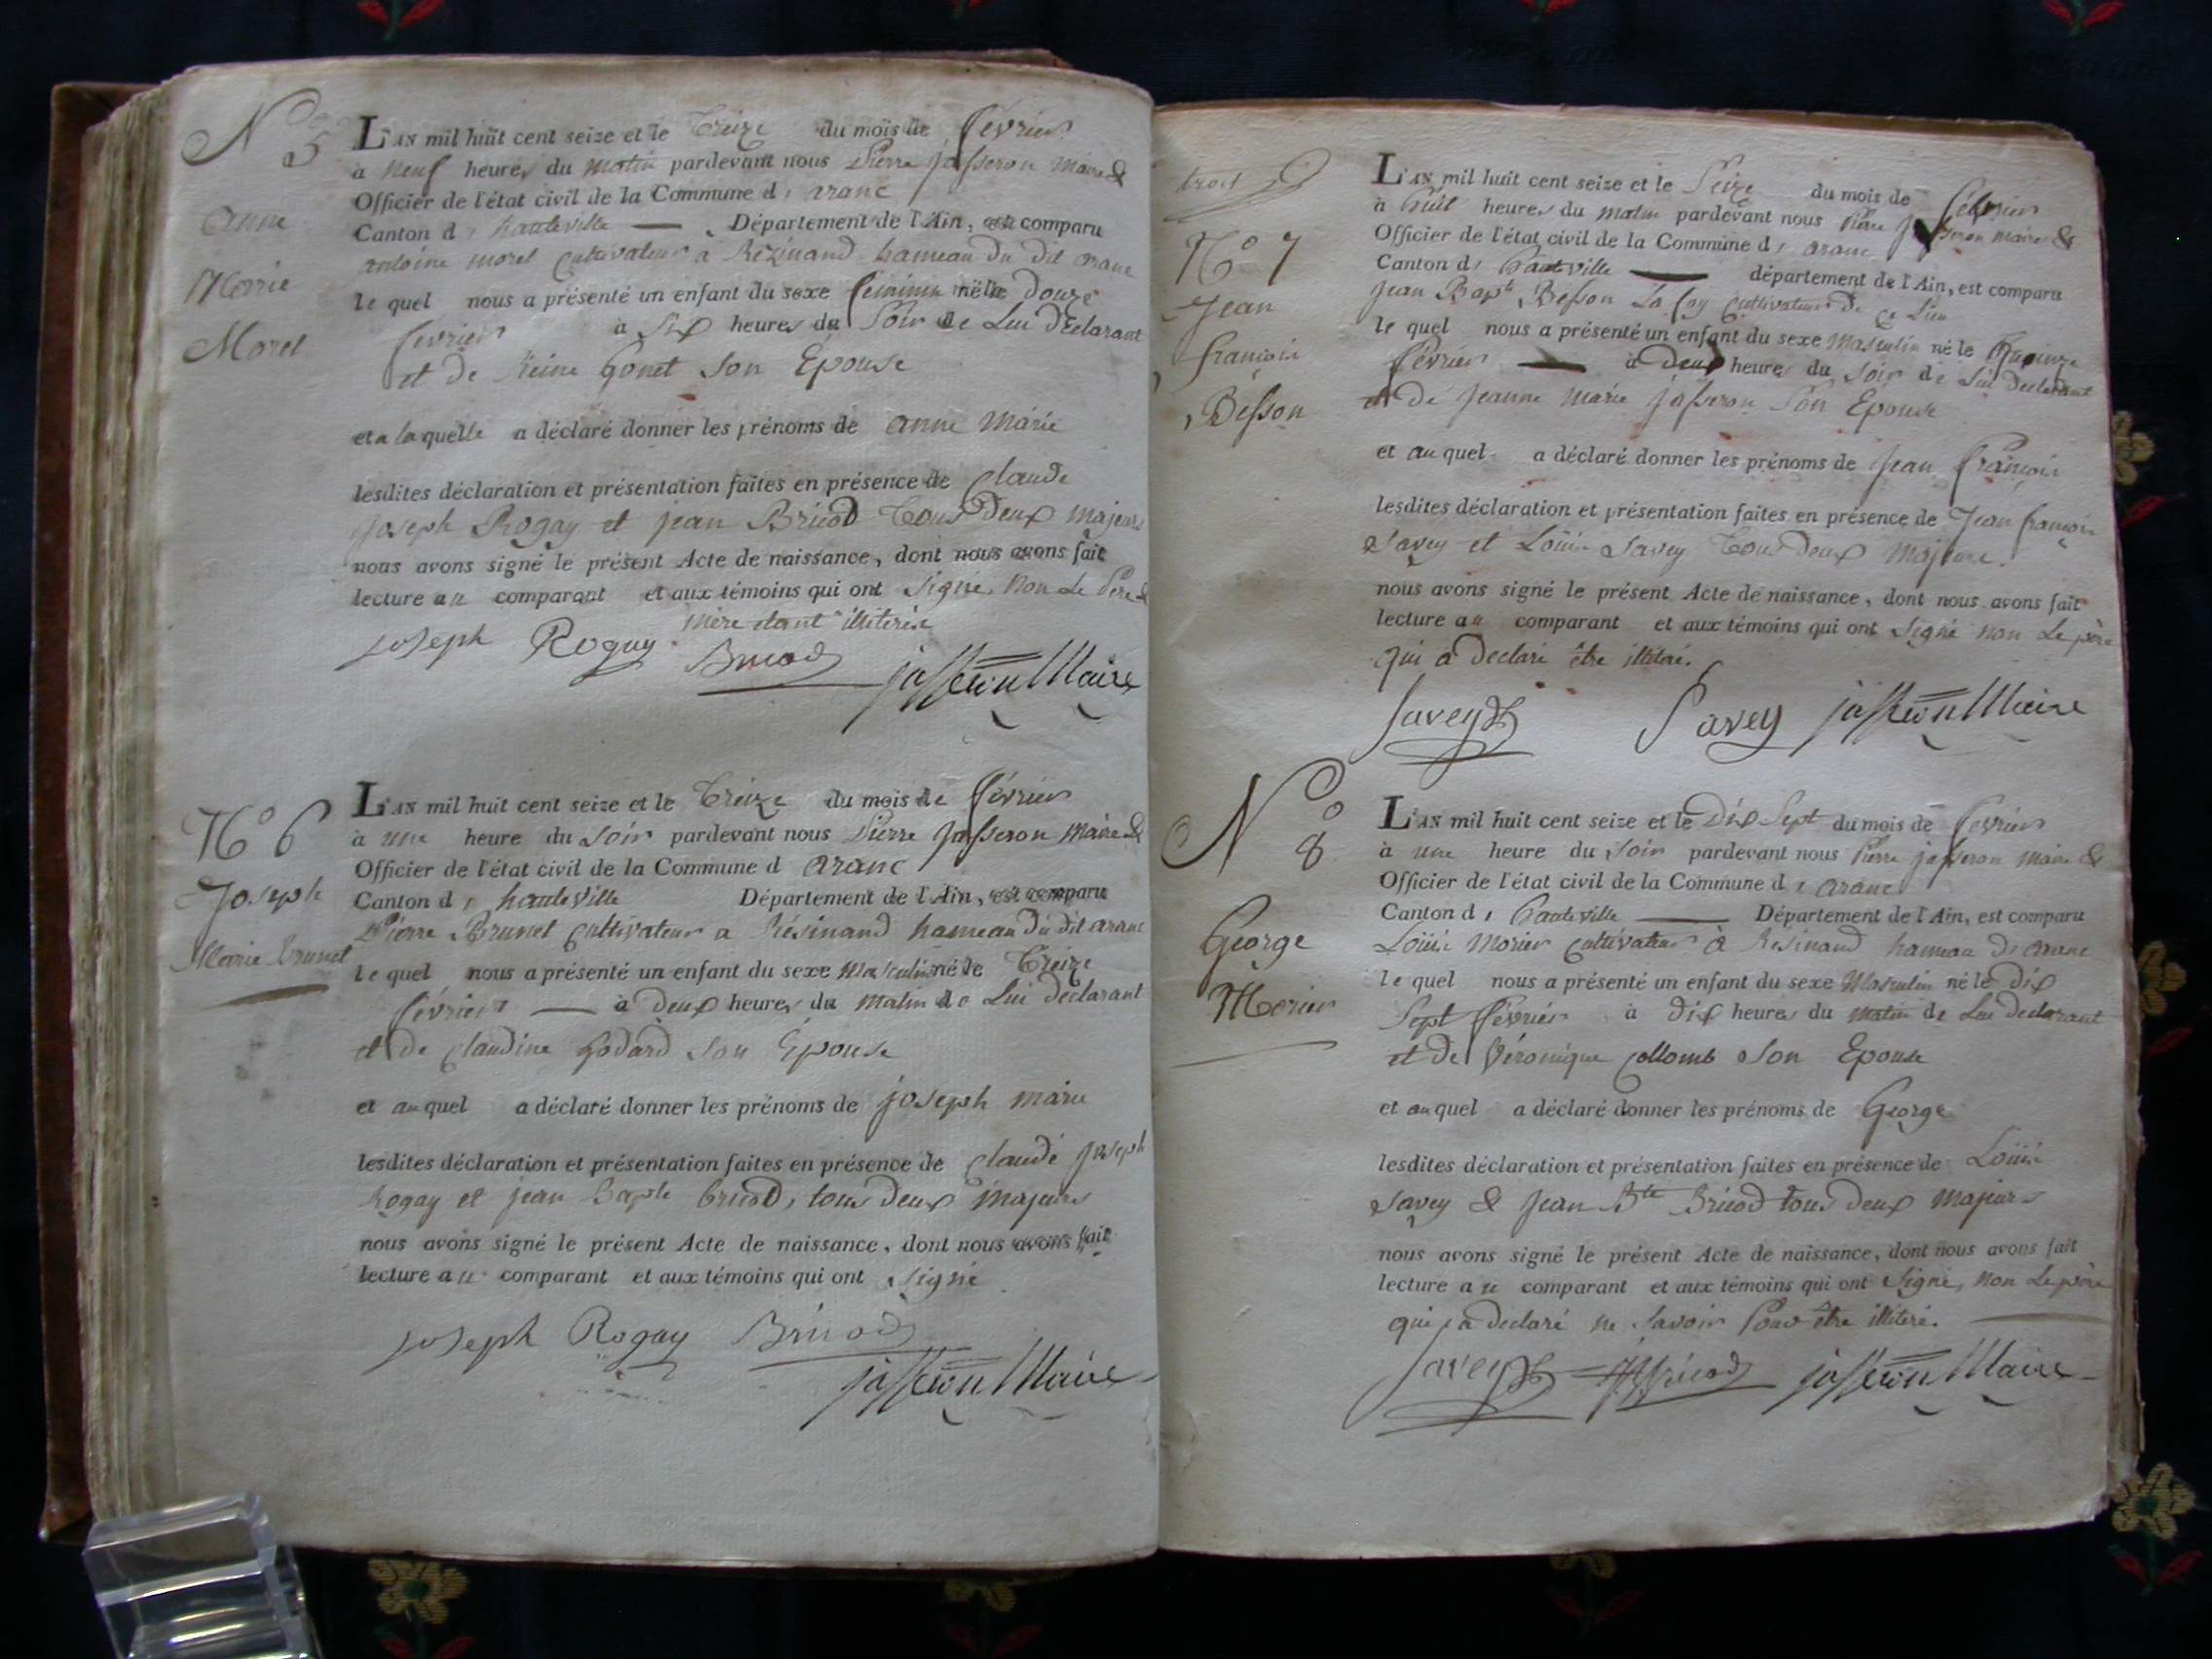 N° 5
Anne
Marie
Morel
L'AN mil huit cent seize et le Treize du mois de février
à neuf heures du matin pardevant nous Pierre jasseron maire &
Officier de l'état civil de la Commune d'aranc
Canton d'hauteville — Département de l'Ain, est comparu
antoine morel cultivateur a Rézinand hameau du dit aranc
le quel nous a présenté un enfant du sexe feminin né le Douze
fevrier à six heures du soir de Lui déclarant
et de Reine gonet son Epouse
et a laquelle a déclaré donner les prénoms de anne marie
lesdites déclaration et présentation faites en présence de claude
joseph Rogay et jean Bricod Tous deux majeurs
nous avons signé le présent Acte de naissance, dont nous avons fait
lecture au comparant et aux témoins qui ont signé, non Le Père &
mère etant illiteré
joseph Rogay Bricod jasseron Maire
N° 6
Joseph
Marie brunet
L'AN mil huit cent seize et le Treize du mois de février
à une heure du soir pardevant nous Pierre jasseron maire &
Officier de l'état civil de la Commune d aranc
Canton d'hauteville Département de l'Ain, est comparu
Pierre Brunet cultivateur a Résinand hameau du dit aranc
le quel nous a présenté un enfant du sexe masculin né le Treize
février — à deux heures du matin de Lui déclarant
et de claudine godard son Epouse
et auquel a déclaré donner les prénoms de joseph marie
lesdites déclaration et présentation faites en présence de claude joseph
Rogay et jean bapte bricod, tous deux majeurs
nous avons signé le présent Acte de naissance, dont nous avons fait
lecture au comparant et aux témoins qui ont signé
joseph Rogay Bricod
jasseron Maire
trois
N° 7
Jean
françois
Besson
L'AN mil huit cent seize et le Seize du mois de février
à huit heures du matin pardevant nous Pierre jasseron maire &
Officier de l'état civil de la Commune d'aranc
Canton d'hauteville — département de l'Ain, est comparu
jean Bapt Besson cultivateur de ce Lieu
le quel nous a présenté un enfant du sexe masculin né le quinze
février — à deux heures du soir de Lui declarant
et de jeanne marie jasseron son Epouse
et auquel a déclaré donner les prénoms de jean françois
lesdites déclaration et présentation faites en présence de jean françois
savey et Louis savey Tous deux majeurs.
nous avons signé le présent Acte de naissance, dont nous avons fait
lecture au comparant et aux témoins qui ont signé non Le père
qui a declaré être illiteré.
Savey Savey jasseron Maire
N° 8
George
Morier
L'AN mil huit cent seize et le Dix Sept du mois de février
à une heure du soir pardevant nous Pierre jasseron maire &
Officier de l'état civil de la Commune d'aranc
Canton d'hauteville — Département de l'Ain, est comparu
Louis morier cultivateur à Resinand hameau d'aranc
le quel nous a présenté un enfant du sexe Masculin né le dix
Sept février à dix heures du matin de Lui declarant
et de Véronique collomb son Epouse
et auquel a déclaré donner les prénoms de George
lesdites déclaration et présentation faites en présence de Louis
savey & jean Bte Bricod tous deux majeurs
nous avons signé le présent Acte de naissance, dont nous avons fait
lecture au comparant et aux témoins qui ont signé, non Le père
qui a declaré ne savoir Pour être illiteré.
Savey Bricod jasseron Maire